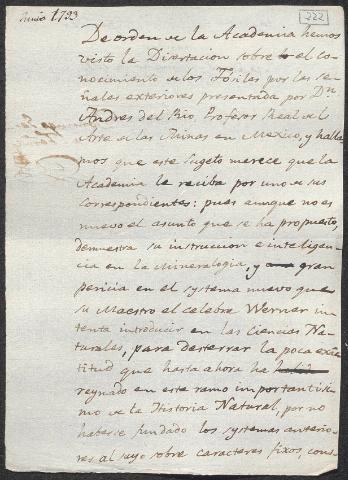 Junio 1793
222
De orden de la Academia hemos
visto la Disertacion sobre el co-
nocimiento de los Fosiles por las se-
ñales exteriores presentada por Dn
Andres del Rio Profesor Real del
Arte de las Minas en Mexico, y halla-
mos que este Sugeto merece que la
Academia le reciba por uno de sus
correspondientes: pues aunque no es
nuevo el asunto que se ha propuesto,
demuestra su instruccion e inteligen-
cia en la Mineralogia, y gran
pericia en el systema nuevo que
su Maestro el celebre Werner in-
tenta introducir en las Ciencias Na-
turales, para desterrar la poca exac-
titud que hasta ahora ha
reynado en este ramo importantisi-
mo de la Historia Natural, por no
haberse fundado los systemas anterio-
res al suyo sobre caracteres fixos, cons-